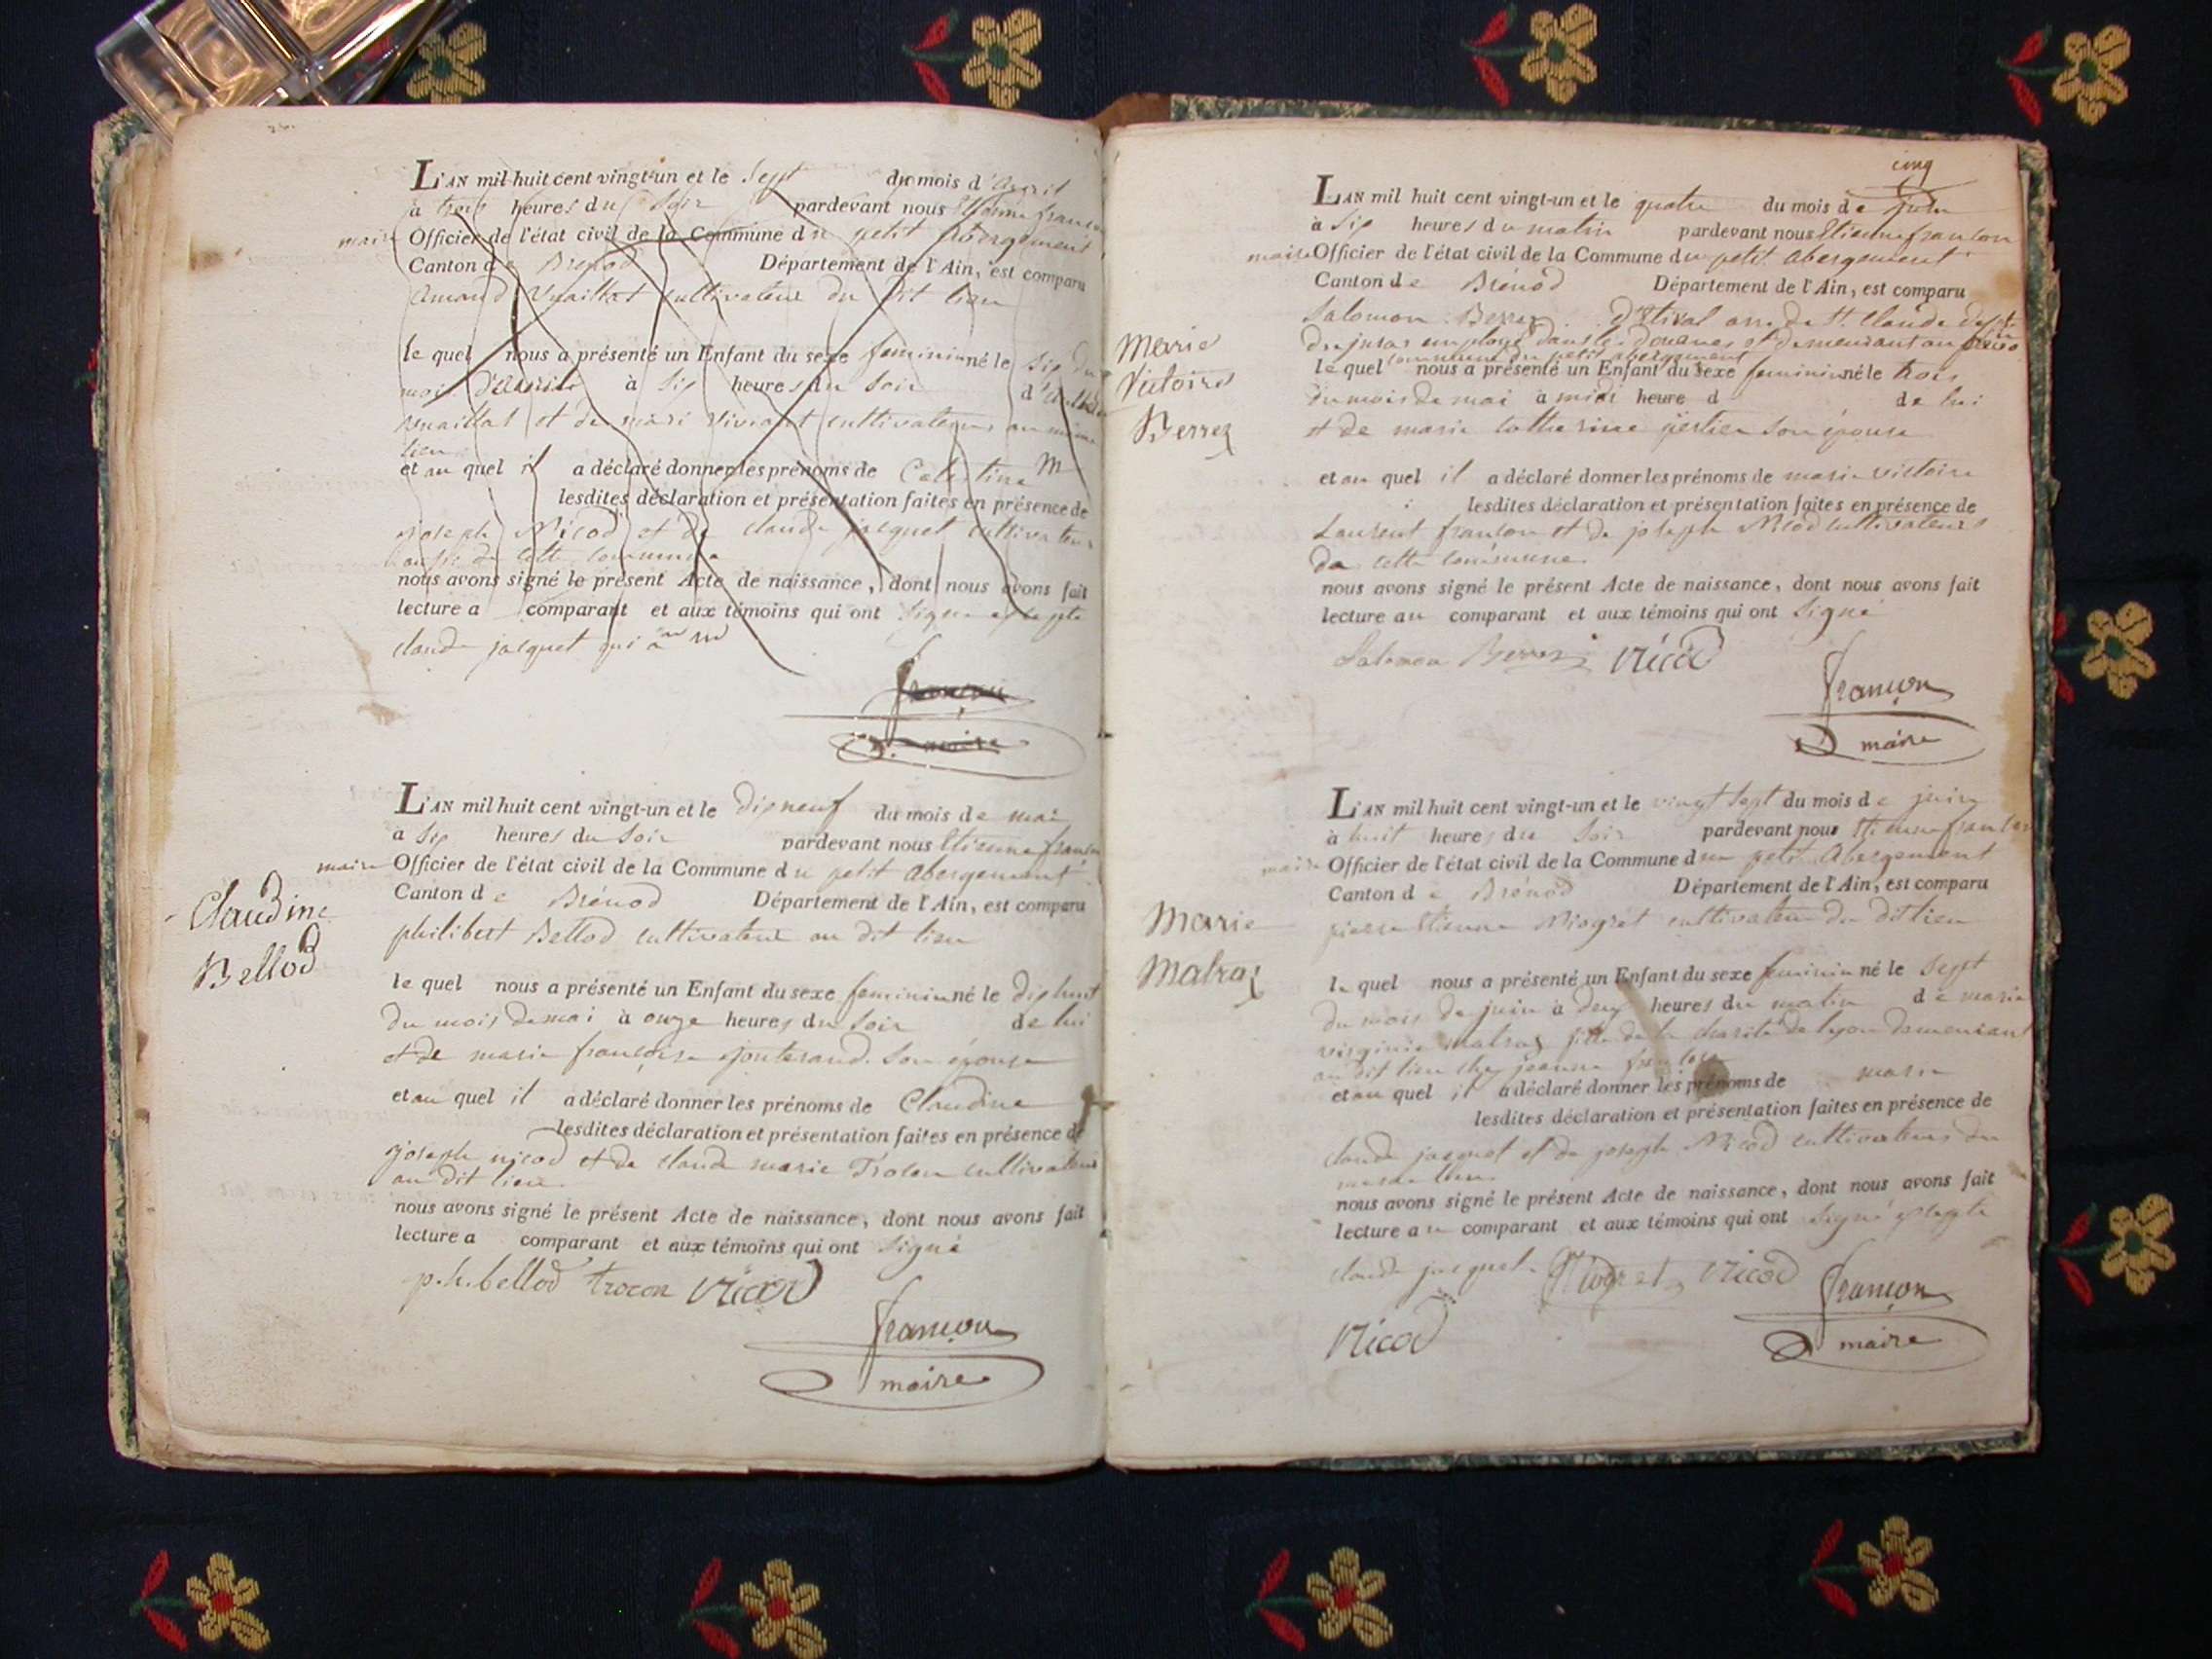 L'AN mil huit cent vingt-un et le Sept du mois d'Avril
à trois heures du Soir pardevant nous Etienne françon
maire Officier de l'état civil de la Commune du petit abergement
Canton de Brénod Département de l'Ain, est comparu
Amand Vuaillat cultivateur du dit lieu
le quel nous a présenté un Enfant du sexe feminin né le Six du
mois d'Avril à Six heures du Soir
Vuaillat et de cultivateurs au même
lieu
et au quel il a déclaré donner les prénoms de Celestine
lesdites déclaration et présentation faites en présence de
joseph Nicod et de claude jacquet cultivateurs
de cette commune
nous avons signé le présent Acte de naissance, dont nous avons fait
lecture a comparant et aux témoins qui ont Signé excepté
claude jacquet qui a
françon
maire
L'AN mil huit cent vingt-un et le Dix neuf du mois de mai
à Six heures du Soir pardevant nous Etienne françon
maire Officier de l'état civil de la Commune du petit abergement
Canton de Brénod Département de l'Ain, est comparu
Claudine
Bellod
philibert Bellod cultivateur au dit lieu
le quel nous a présenté un Enfant du sexe feminin né le Dix huit
du mois de mai à onze heures du Soir de lui
et de marie françoise son épouse
et au quel il a déclaré donner les prénoms de Claudine
lesdites déclaration et présentation faites en présence de
joseph nicod et de claude marie cultivateurs
au dit lieu
nous avons signé le présent Acte de naissance, dont nous avons fait
lecture a comparant et aux témoins qui ont Signé
p.h. bellod trocon Nicod
françon
maire
cinq
L'AN mil huit cent vingt-un et le quatre du mois de
à Six heures du matin pardevant nous Etienne françon
maire Officier de l'état civil de la Commune du petit abergement
Canton de Brénod Département de l'Ain, est comparu
Salomon Berrez d'Etival arr. de St. Claude dept.
du jura employé dans les Douanes et demeurant au
commune du petit abergement
Marie
Victoire
Berrez
le quel nous a présenté un Enfant du sexe feminin né le trois
du mois de mai à midi heure d de lui
et de marie son épouse
et au quel il a déclaré donner les prénoms de marie victoire
lesdites déclaration et présentation faites en présence de
Laurent françon et de joseph Nicod cultivateurs
de cette commune
nous avons signé le présent Acte de naissance, dont nous avons fait
lecture au comparant et aux témoins qui ont Signé
Salomon Berrez Nicod
françon
maire
L'AN mil huit cent vingt-un et le vingt Sept du mois de juin
à huit heures du Soir pardevant nous Etienne françon
maire Officier de l'état civil de la Commune du petit Abergement
Canton de Brénod Département de l'Ain, est comparu
Marie
Malraz
pierre Etienne Niogret cultivateur du dit lieu
le quel nous a présenté un Enfant du sexe feminin né le Sept
du mois de juin à deux heures du matin de marie
virginie malraz fille de la charité de lyon demeurant
au dit lieu chez jeanne
et au quel il a déclaré donner les prénoms de marie
lesdites déclaration et présentation faites en présence de
claude jacquet et de joseph Nicod cultivateurs du
même lieu
nous avons signé le présent Acte de naissance, dont nous avons fait
lecture au comparant et aux témoins qui ont signé excepté
claude jacquet Niogret Nicod françon
Nicod
maire